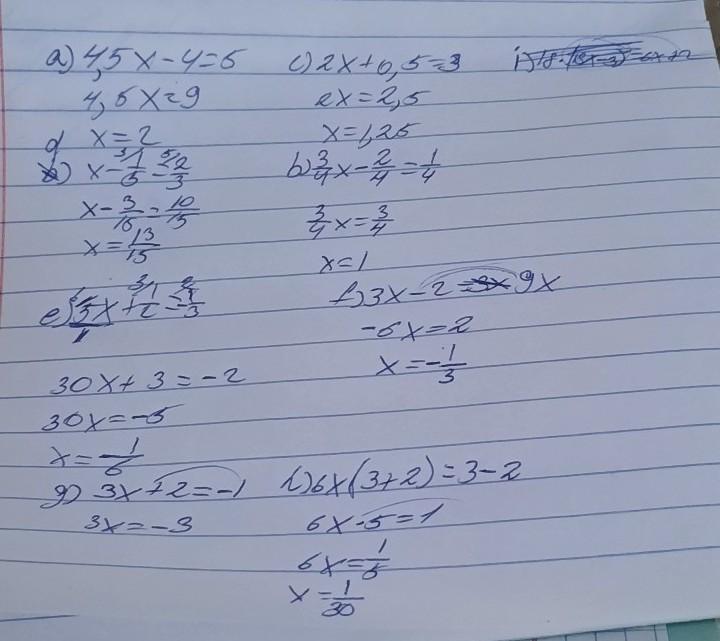 a) 4,5x-4=5
4,5x=9
x=2
c) 2x+0,5=3
2x=2,5
x=1,25
d) x-1/5=2/3
x-3/15=10/15
x=13/15
b) 3/4x-2/4=1/4
3/4x=3/4
x=1
e) 5x+1/2=-1/3
30x+3=-2
30x=-5
x=-1/6
f) 3x-2=9x
-6x=2
x=-1/3
g) 3x+2=-1
3x=-3
h) 6x(3+2)=3-2
6x·5=1
6x=1/5
x=1/30